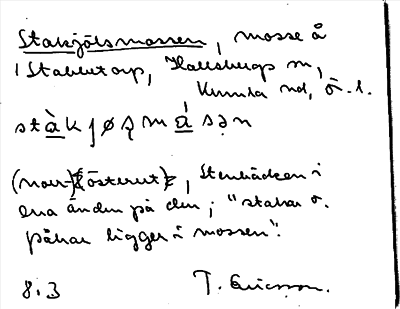 Stakjölsmossen, mosse å
1 Stabbetorp, Hallsbergs sn,
Kumla hd, Ö.l.
stàkjøʂmásən
(norr) österut), Stenbäcken i
ena änden på den; "stakar o.
pålar ligger i mossen".
8.3 T. Ericsson.